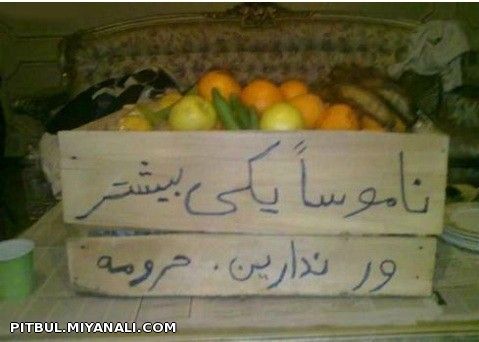 ناموساً یکی بیشتر
ور ندارین. حرومه
PITBUL.MIYANALI.COM